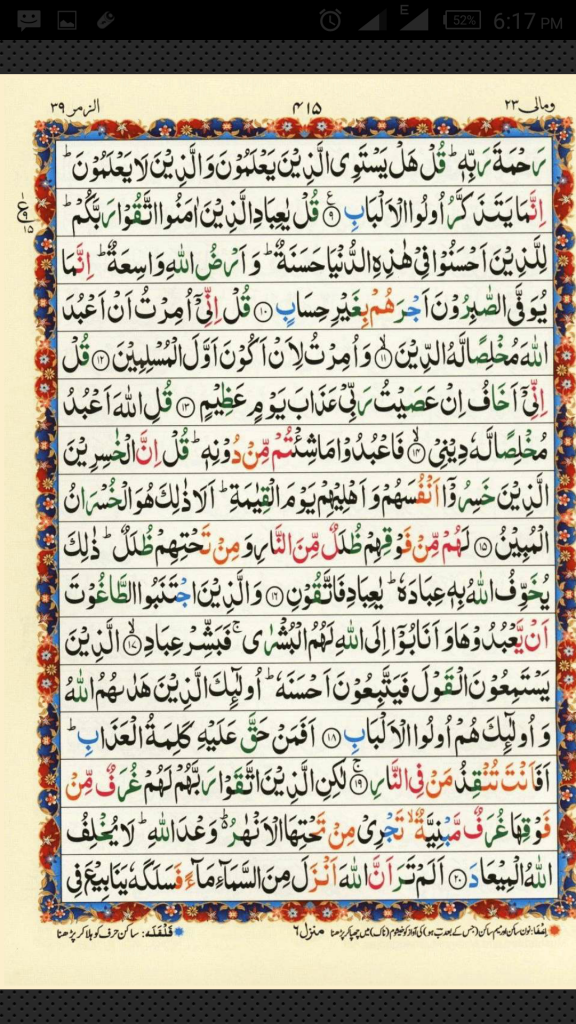 E 52% 6:17 PM
ومالی ۲۳ ۴۱۵ الزمر ۳۹
رَحْمَةَ رَبِّهٖ ؕ قُلْ هَلْ یَسْتَوِی الَّذِیْنَ یَعْلَمُوْنَ وَالَّذِیْنَ لَا یَعْلَمُوْنَ ؕ
اِنَّمَا یَتَذَكَّرُ اُولُوا الْاَلْبَابِ ۹ ع قُلْ یٰعِبَادِ الَّذِیْنَ اٰمَنُوا اتَّقُوْا رَبَّكُمْ ؕ
ع ۹ ۱۵
لِلَّذِیْنَ اَحْسَنُوْا فِیْ هٰذِهِ الدُّنْیَا حَسَنَةٌ ؕ وَ اَرْضُ اللّٰهِ وَاسِعَةٌ ؕ اِنَّمَا
یُوَفَّی الصّٰبِرُوْنَ اَجْرَهُمْ بِغَیْرِ حِسَابٍ ۱۰ قُلْ اِنِّیْۤ اُمِرْتُ اَنْ اَعْبُدَ
اللّٰهَ مُخْلِصًا لَّهُ الدِّیْنَ ۱۱ۙ وَ اُمِرْتُ لِاَنْ اَكُوْنَ اَوَّلَ الْمُسْلِمِیْنَ ۱۲ قُلْ
اِنِّیْۤ اَخَافُ اِنْ عَصَیْتُ رَبِّیْ عَذَابَ یَوْمٍ عَظِیْمٍ ۱۳ قُلِ اللّٰهَ اَعْبُدُ
مُخْلِصًا لَّهٗ دِیْنِیْ ۱۴ۙ فَاعْبُدُوْا مَا شِئْتُمْ مِّنْ دُوْنِهٖ ؕ قُلْ اِنَّ الْخٰسِرِیْنَ
الَّذِیْنَ خَسِرُوْۤا اَنْفُسَهُمْ وَ اَهْلِیْهِمْ یَوْمَ الْقِیٰمَةِ ؕ اَلَا ذٰلِكَ هُوَ الْخُسْرَانُ
الْمُبِیْنُ ۱۵ لَهُمْ مِّنْ فَوْقِهِمْ ظُلَلٌ مِّنَ النَّارِ وَ مِنْ تَحْتِهِمْ ظُلَلٌ ؕ ذٰلِكَ
یُخَوِّفُ اللّٰهُ بِهٖ عِبَادَهٗ ؕ یٰعِبَادِ فَاتَّقُوْنِ ۱۶ وَ الَّذِیْنَ اجْتَنَبُوا الطَّاغُوْتَ
اَنْ یَّعْبُدُوْهَا وَ اَنَابُوْۤا اِلَی اللّٰهِ لَهُمُ الْبُشْرٰی ۚ فَبَشِّرْ عِبَادِ ۱۷ۙ الَّذِیْنَ
یَسْتَمِعُوْنَ الْقَوْلَ فَیَتَّبِعُوْنَ اَحْسَنَهٗ ؕ اُولٰٓئِكَ الَّذِیْنَ هَدٰىهُمُ اللّٰهُ
وَ اُولٰٓئِكَ هُمْ اُولُوا الْاَلْبَابِ ۱۸ اَفَمَنْ حَقَّ عَلَیْهِ كَلِمَةُ الْعَذَابِ ؕ
اَفَاَنْتَ تُنْقِذُ مَنْ فِی النَّارِ ۱۹ۚ لٰكِنِ الَّذِیْنَ اتَّقَوْا رَبَّهُمْ لَهُمْ غُرَفٌ مِّنْ
فَوْقِهَا غُرَفٌ مَّبْنِیَّةٌ ۙ تَجْرِیْ مِنْ تَحْتِهَا الْاَنْهٰرُ ؕ وَعْدَ اللّٰهِ ؕ لَا یُخْلِفُ
اللّٰهُ الْمِیْعَادَ ۲۰ اَلَمْ تَرَ اَنَّ اللّٰهَ اَنْزَلَ مِنَ السَّمَآءِ مَآءً فَسَلَكَهٗ یَنَابِیْعَ فِی
اخفا: نون ساکن اور میم ساکن (جس کے بعد ب ہو) کی آواز کو خیشوم (ناک) میں چھپا کر پڑھنا منزل ۶ قلقلہ: ساکن حرف کو ہلا کر پڑھنا